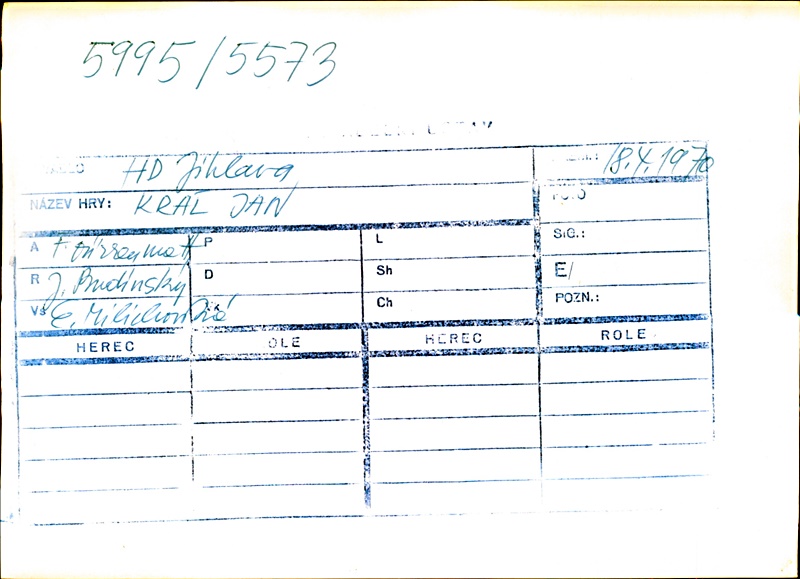 5995/5573
HD Jihlava 18.4.1970
NÁZEV HRY: KRÁL JAN
A F. Dürrenmatt P L SIG.:
R J. Budínský D Sh E/
VS E. Milichovská Ch POZN.:
HEREC ROLE HEREC ROLE